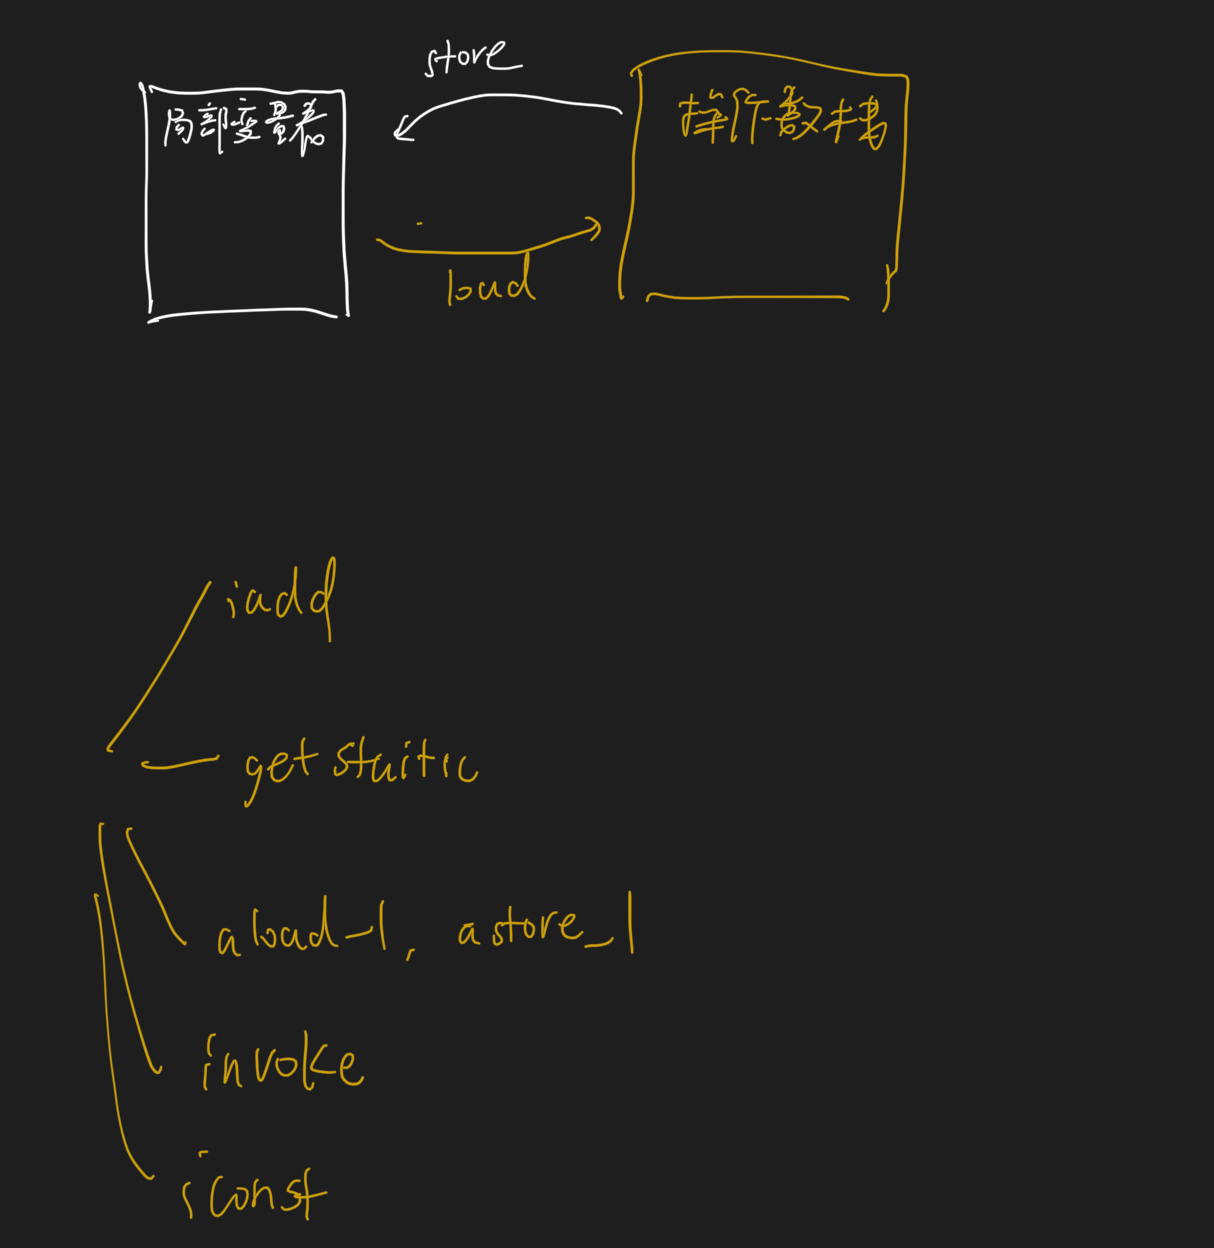 store
局部变量表
操作数栈
load
iadd
getstaitic
aload_1, astore_1
invoke
iconst